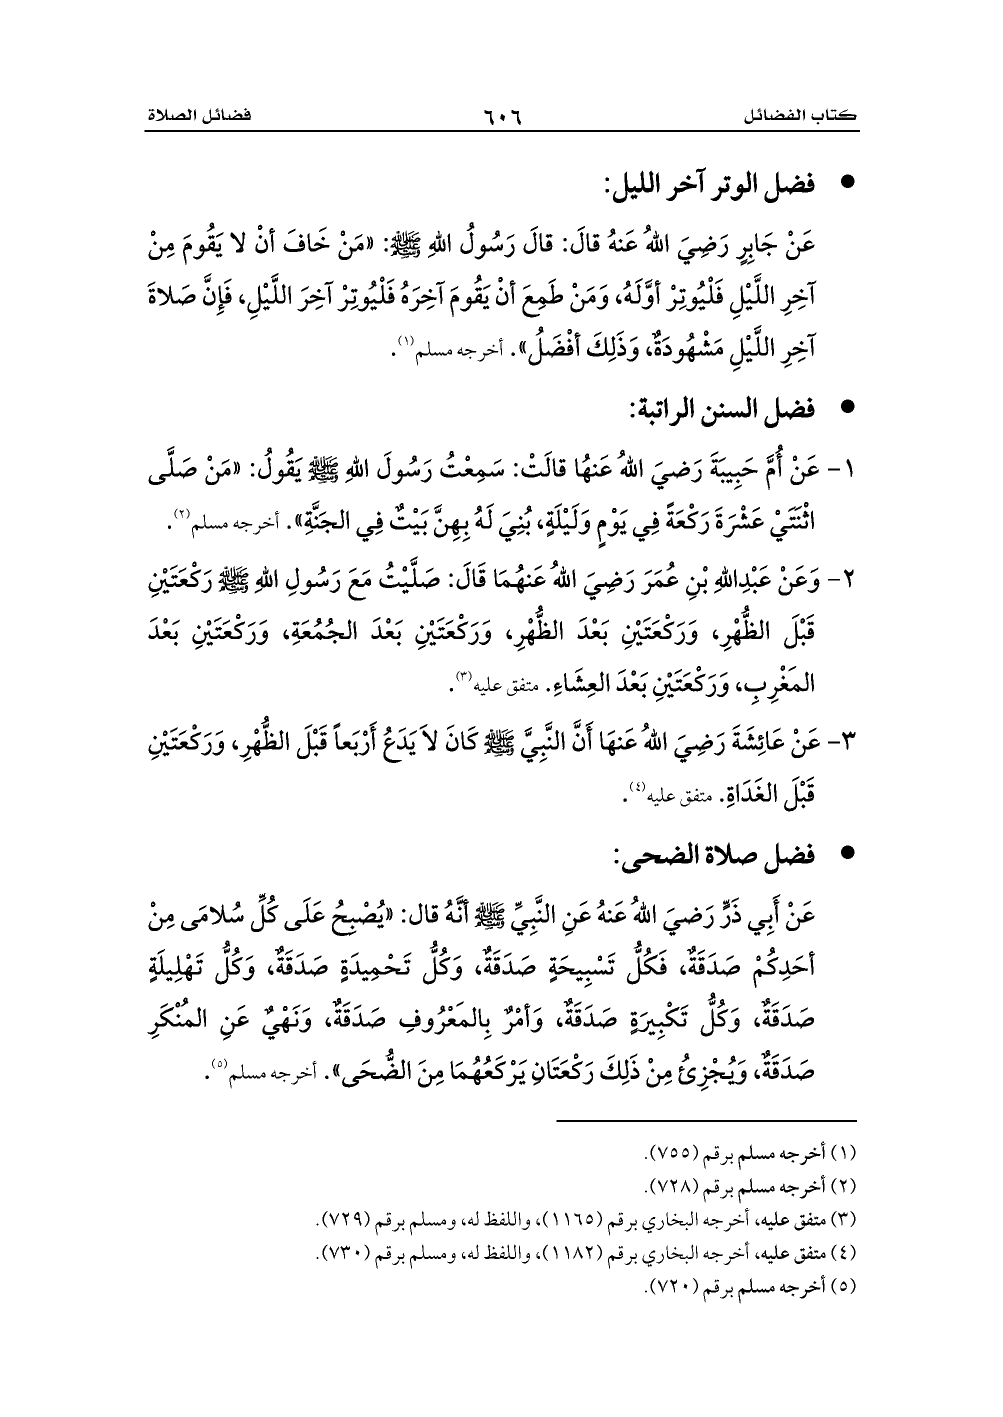 كتاب الفضائل ٦٠٦ فضائل الصلاة
● فضل الوتر آخر الليل:
عَنْ جَابِرٍ رَضِيَ اللهُ عَنهُ قالَ: قالَ رَسُولُ اللهِ ﷺ: «مَنْ خَافَ أنْ لا يَقُومَ مِنْ
آخِرِ اللَّيْلِ فَلْيُوتِرْ أوَّلَهُ، وَمَنْ طَمِعَ أنْ يَقُومَ آخِرَهُ فَلْيُوتِرْ آخِرَ اللَّيْلِ، فَإِنَّ صَلاةَ
آخِرِ اللَّيْلِ مَشْهُودَةٌ، وَذَلِكَ أفْضَلُ». أخرجه مسلم(١).
● فضل السنن الراتبة:
١- عَنْ أُمِّ حَبِيبَةَ رَضيَ اللهُ عَنهُا قالَتْ: سَمِعْتُ رَسُولَ اللهِ ﷺ يَقُولُ: «مَنْ صَلَّى
اثْنَتَيْ عَشْرَةَ رَكْعَةً فِي يَوْمٍ وَلَيْلَةٍ، بُنِيَ لَهُ بِهِنَّ بَيْتٌ فِي الجَنَّةِ». أخرجه مسلم(٢).
٢- وَعَنْ عَبْدِاللهِ بْنِ عُمَرَ رَضِيَ اللهُ عَنهُمَا قَالَ: صَلَّيْتُ مَعَ رَسُولِ اللهِ ﷺ رَكْعَتَيْنِ
قَبْلَ الظُّهْرِ، وَرَكْعَتَيْنِ بَعْدَ الظُّهْرِ، وَرَكْعَتَيْنِ بَعْدَ الجُمُعَةِ، وَرَكْعَتَيْنِ بَعْدَ
المَغْرِبِ، وَرَكْعَتَيْنِ بَعْدَ العِشَاءِ. متفق عليه(٣).
٣- عَنْ عَائِشَةَ رَضِيَ اللهُ عَنهَا أَنَّ النَّبِيَّ ﷺ كَانَ لاَ يَدَعُ أَرْبَعاً قَبْلَ الظُّهْرِ، وَرَكْعَتَيْنِ
قَبْلَ الغَدَاةِ. متفق عليه(٤).
● فضل صلاة الضحى:
عَنْ أَبِي ذَرٍّ رَضيَ اللهُ عَنهُ عَنِ النَّبِيِّ ﷺ أنَّهُ قال: «يُصْبِحُ عَلَى كُلِّ سُلامَى مِنْ
أحَدِكُمْ صَدَقَةٌ، فَكُلُّ تَسْبِيحَةٍ صَدَقَةٌ، وَكُلُّ تَحْمِيدَةٍ صَدَقَةٌ، وَكُلُّ تَهْلِيلَةٍ
صَدَقَةٌ، وَكُلُّ تَكْبِيرَةٍ صَدَقَةٌ، وَأمْرٌ بِالمَعْرُوفِ صَدَقَةٌ، وَنَهْيٌ عَنِ المُنْكَرِ
صَدَقَةٌ، وَيُجْزِئُ مِنْ ذَلِكَ رَكْعَتَانِ يَرْكَعُهُمَا مِنَ الضُّحَى». أخرجه مسلم(٥).
(١) أخرجه مسلم برقم (٧٥٥).
(٢) أخرجه مسلم برقم (٧٢٨).
(٣) متفق عليه، أخرجه البخاري برقم (١١٦٥)، واللفظ له، ومسلم برقم (٧٢٩).
(٤) متفق عليه، أخرجه البخاري برقم (١١٨٢)، واللفظ له، ومسلم برقم (٧٣٠).
(٥) أخرجه مسلم برقم (٧٢٠).